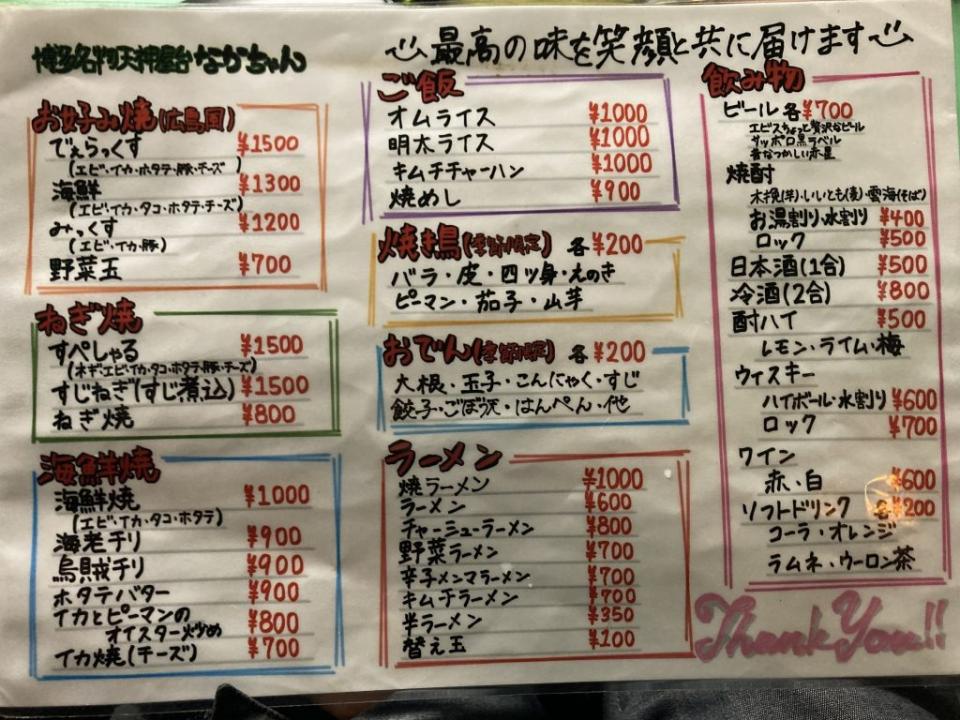 博多名物天神屋台 なかちゃん
最高の味を笑顔と共に届けます
お好み焼(広島風)
でぇらっくす ¥1500
(エビ・イカ・ホタテ・豚・チーズ)
海鮮 ¥1300
(エビ・イカ・タコ・ホタテ・チーズ)
みっくす ¥1200
(エビ・イカ・豚)
野菜玉 ¥700
ねぎ焼
すぺしゃる ¥1500
(ネギ・エビ・イカ・タコ・ホタテ・豚・チーズ)
すじねぎ(すじ煮込) ¥1500
ねぎ焼 ¥800
海鮮焼
海鮮焼 ¥1000
(エビ・イカ・タコ・ホタテ)
海老チリ ¥900
烏賊チリ ¥900
ホタテバター ¥900
イカとピーマンの
オイスター炒め ¥800
イカ焼(チーズ) ¥700
ご飯
オムライス ¥1000
明太ライス ¥1000
キムチチャーハン ¥1000
焼めし ¥900
焼き鳥(季節限定) 各¥200
バラ・皮・四ツ身・えのき
ピーマン・茄子・山芋
おでん(季節限定) 各¥200
大根・玉子・こんにゃく・すじ
餃子・ごぼう天・はんぺん・他
ラーメン
焼ラーメン ¥1000
ラーメン ¥600
チャーシューラーメン ¥800
野菜ラーメン ¥700
辛子メンマラーメン ¥700
キムチラーメン ¥700
半ラーメン ¥350
替え玉 ¥100
飲み物
ビール 各¥700
エビスちょっと贅沢なビール
サッポロ黒ラベル
昔なつかしい赤星
焼酎
木挽(芋)・いいとも(麦)・雲海(そば)
お湯割り・水割り ¥400
ロック ¥500
日本酒(1合) ¥500
冷酒(2合) ¥800
酎ハイ ¥500
レモン・ライム・梅
ウィスキー
ハイボール・水割り ¥600
ロック ¥700
ワイン
赤・白 ¥600
ソフトドリンク 各¥200
コーラ・オレンジ
ラムネ・ウーロン茶
Thank You!!